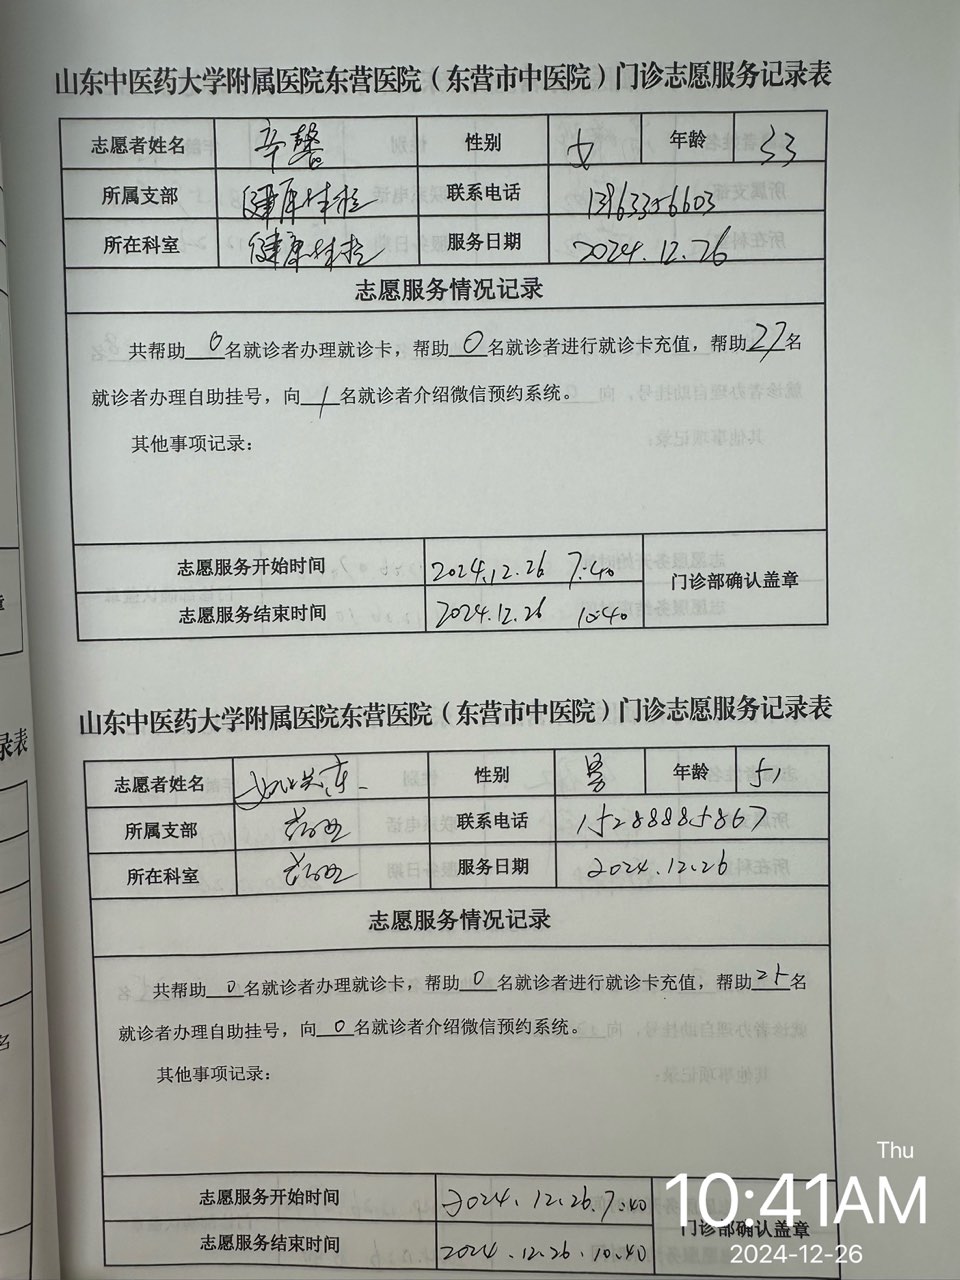 山东中医药大学附属医院东营医院（东营市中医院）门诊志愿服务记录表
志愿者姓名 辛馨 性别 女 年龄 33
所属支部 健康体检 联系电话 13963356603
所在科室 健康体检 服务日期 2024.12.26
志愿服务情况记录
共帮助0名就诊者办理就诊卡，帮助0名就诊者进行就诊卡充值，帮助27名
就诊者办理自助挂号，向1名就诊者介绍微信预约系统。
其他事项记录：
志愿服务开始时间 2024.12.26 7:40 门诊部确认盖章
志愿服务结束时间 2024.12.26 10:40
山东中医药大学附属医院东营医院（东营市中医院）门诊志愿服务记录表
志愿者姓名 性别 男 年龄 51
所属支部 联系电话 15288885867
所在科室 服务日期 2024.12.26
志愿服务情况记录
共帮助0名就诊者办理就诊卡，帮助0名就诊者进行就诊卡充值，帮助25名
就诊者办理自助挂号，向0名就诊者介绍微信预约系统。
其他事项记录：
志愿服务开始时间 2024.12.26.7:40 门诊部确认盖章
志愿服务结束时间 2024.12.26.10.40
Thu
10:41AM
2024-12-26
录表
名